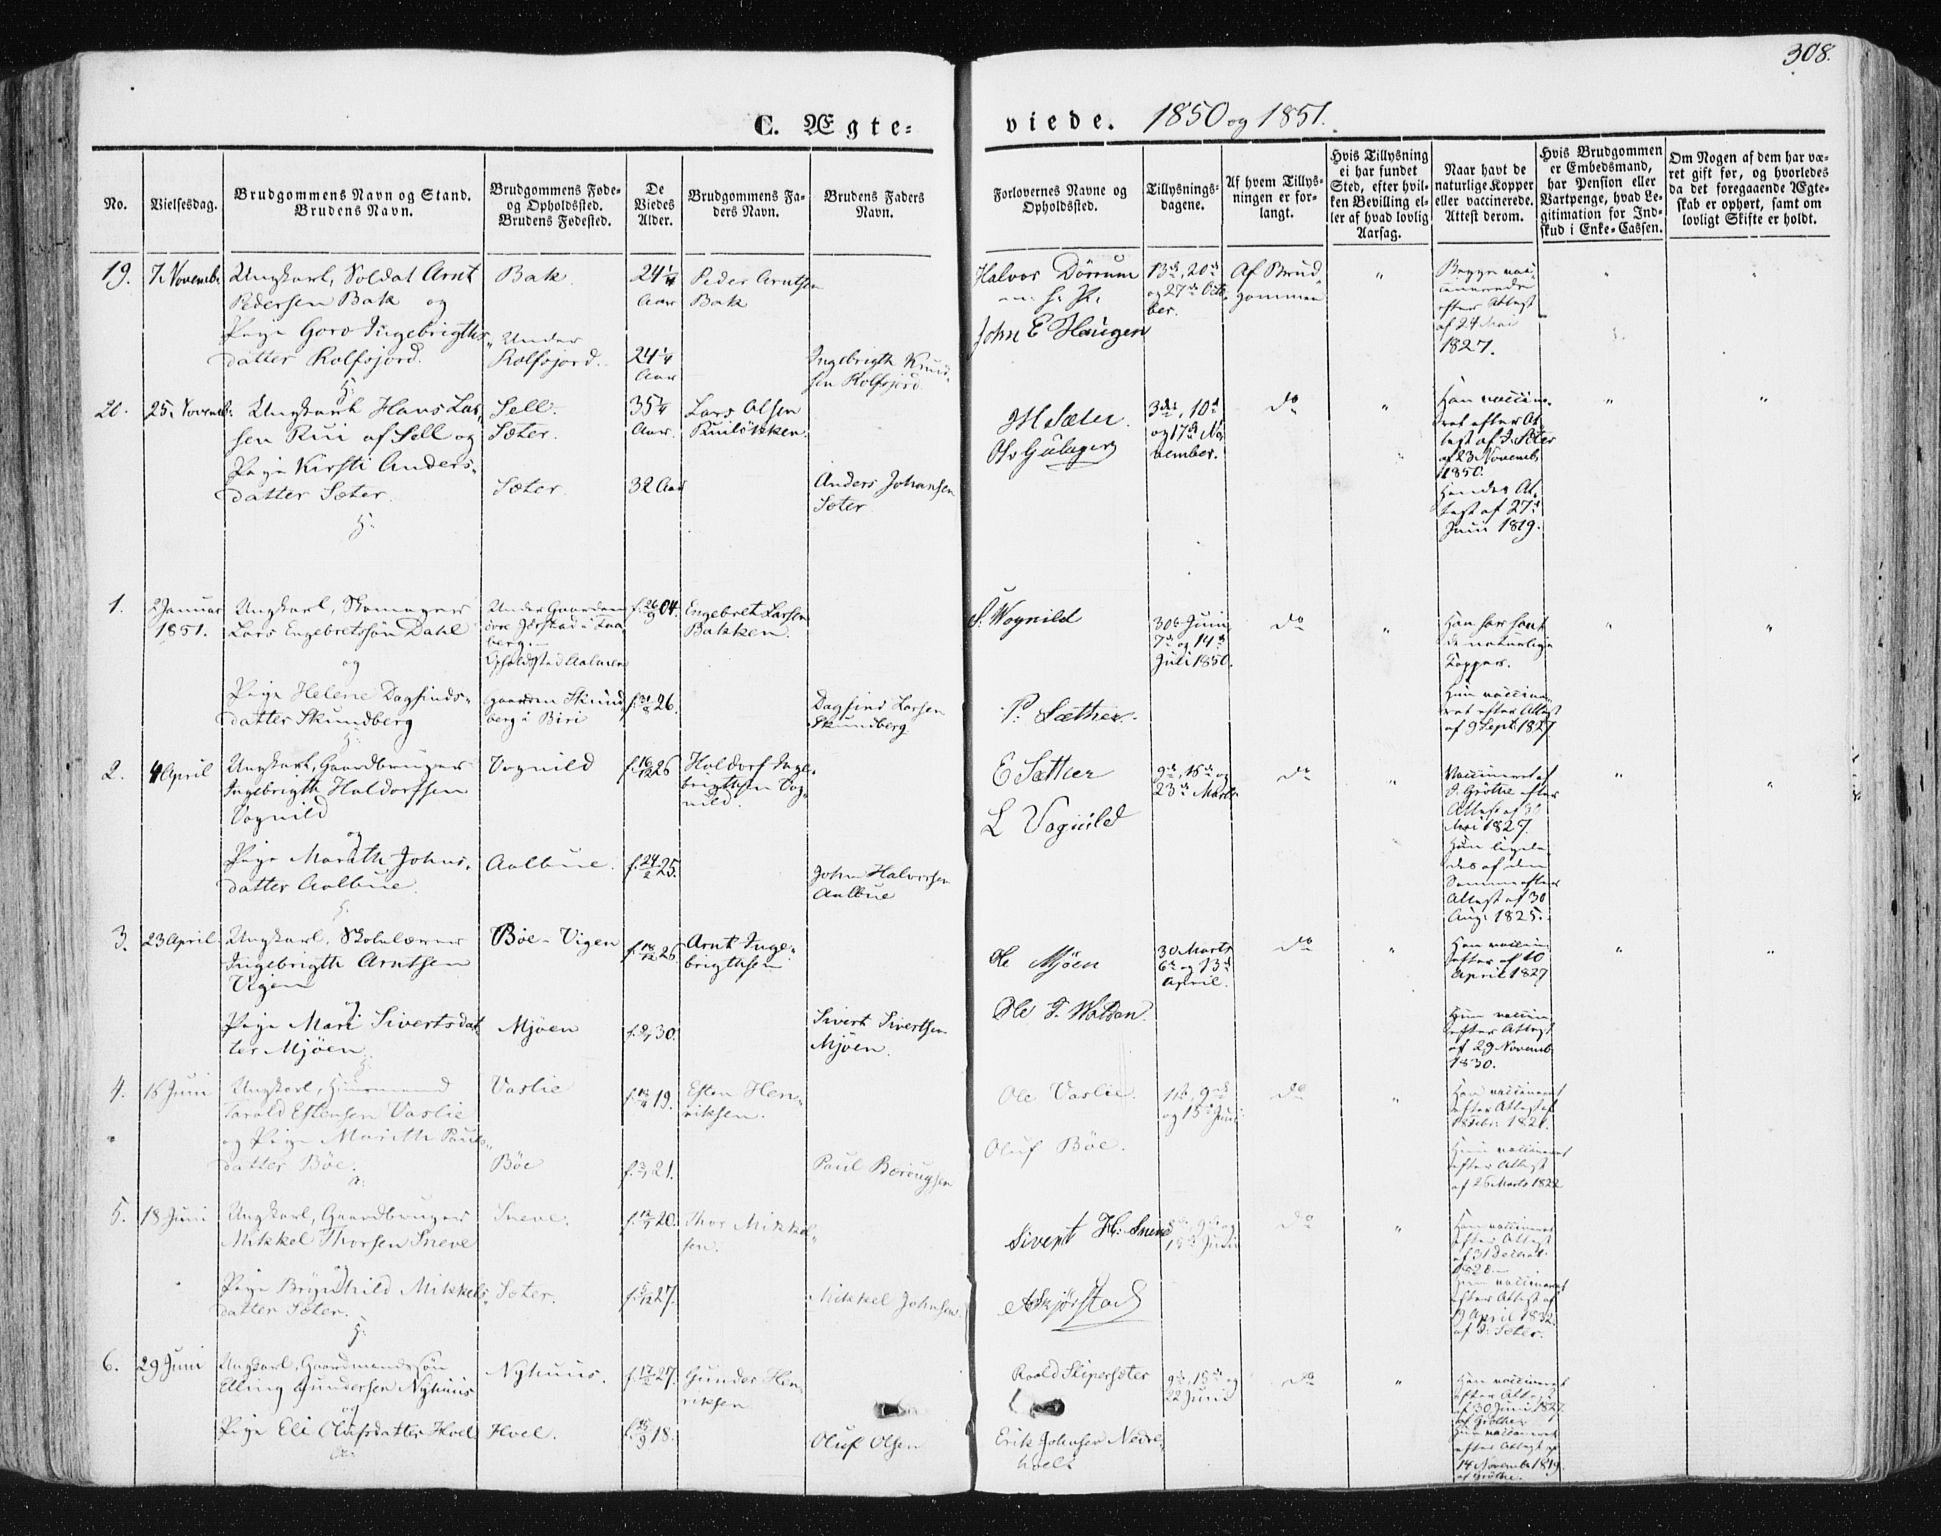 308.
C. Ægte=
viede. 1850 og 1851.
No.
Vielsesdag.
Brudgommens Navn og Stand.
Brudens Navn.
Brudgommens Føde=
og Opholdssted.
Brudens Fødested.
De
Viedes
Alder.
Brudgommens Fa=
ders Navn.
Brudens Faders
Navn.
Forlovernes Navne og
Opholdssted.
Tillysnings=
dagene.
Af hvem Tillys=
ningen er for=
langt.
Hvis Tillysning
ei har fundet
Sted, efter hvil=
ken Bevilling el=
ler af hvad lovlig
Aarsag.
Naar havt de
naturlige Kopper
eller vaccinerede.
Attest derom.
Hvis Brudgommen
er Embedsmand,
har Pension eller
Vartpenge, hvad Le=
gitimation for Ind=
skud i Enke=Cassen.
Om Nogen af dem har væ=
ret gift før, og hvorledes
da det foregaaende Ægte=
skab er ophørt, samt om
lovligt Skifte er holdt.
19.
7 Novemb:
Ungkarl, Soldat Arnt
Pedersen Bak og
Pige Goro Ingebrigths=
datter Rolfsjord.
Bak
Under
Rolfsjord.
24 1/4
Aar
24 1/4
Aar
Peder Arntsen
Bak
Ingebrigth Knud=
sen Rolfsjord
Halvor Dörrum
John E Haugen
13de, 20de
og 27de Octo=
ber.
Af Brud
gommen
"
Begge vac=
cinerede
efter Attest
af 24 Mai
1827.
"
"
20.
25 Novemb:
Ungkarl Hans Lar=
sen Rui af Sell og
Pige Kirsti Anders=
datter Sæter.
Sell.
Sæter.
Sæter.
35 1/4
Aar.
32 Aar
Lars Olsen
Ruilökken
Anders Johansen
Sæter
JH Sæter.
3die, 10de
og 17de No
vember.
do
"
Han vaccine=
ret efter At=
test af J. Sæter
af 23 Novemb.
1850.
Hendes At=
test af 27de
Juni 1819.
"
"
1.
2 Januar
1851.
Ungkarl, Skomager
Lars Engebretsön Dahl
og
Pige Helene Dagfinds=
datter Skundberg
Under Gaarden
övre Jörstad i Faa=
berg
Gaarden Skund
berg i Biri
f. 26/9 04.
26.
Engebret Larsen
Bakken.
Dagfind Larsen
Skundberg
S. Wognild
P. Sæther.
30te Juni
7de og 14de
Juli 1850.
do
"
Han har havt
de naturlige
Kopper.
Hun vaccine=
ret efter Attest
af 9 Septb 1827
"
"
2.
4 April
Ungkarl, Gaardbruger
Ingebrigth Haldorsen
Vognild
og
Pige Marith Johns=
datter Aalbue
Vognild
Aalbue.
f. 16/12 26
f. 24/2 25.
Haldor Inge=
brigthsen Vog=
nild.
John Halvorsen
Aalbue
E Sæther
L Vognild
9de, 16de og
23de Marts
do
"
Vaccineret af
J. Gröthe efter
Attest af
Mai 1827.
Hun ligele=
des af den
Samme efter
Attest af 30
Aug: 1825.
"
"
3.
23 April
Ungkarl, Skolelærer
Ingebrigth Arntsen
Vigen
og
Pige Mari Sivertsdat
ter Mjöen
Böe-Vigen
Mjöen
f. 18/12 26
30.
Arnt Inge=
brigthsen
Sivert Sivertsen
Mjöen.
Ole Mjöen
30 Marts
6te og 13de
April.
do
"
Han vaccin:
efter af 10
April 1827
Hun vaccin:
efter Attest
af 29 Novemb:
1830.
"
"
4.
16 Juni
Ungkarl, Huusmand
Tarald Estensen Vaslie
og Pige Marith Pauls=
datter Böe.
Vaslie
Böe
19.
21.
Esten Hen=
riksen.
Paul Bærougsen
Ole Vaslie.
Oluf Böe.
1ste, 9de
og 15de Juni
do
"
Han vaccineret
efter Attest af
Hun vaccineret
efter Attest
af 26 Marts 1822
5.
18 Juni
Ungkarl, Gaardbruger
Mikkel Thorsen Sneve
og
Pige Brynhild Mikkels=
datter Sæter.
Sneve.
Sæter.
20.
27.
Thor Mikkel=
sen.
Mikkel Johnsen.
Sivert H. Sneve
A Skjörstad
15de Juni
do
"
Han vaccineret
efter Attest
Hun vaccineret
efter Attest af
9 April 1832
af J: Sæter.
6.
29 Juni
Ungkarl, Gaardmandssön
Elling Gundersen Nyhuus
og
Pige Eli Olufsdatter Hoel
Nyhuus.
Hoel.
f. 17/2 27.
18.
Gunder Hen
riksen
Oluf Olsen
Roald Skipersæter
Erik Johnsen Nedre
hoel
9de, 15de og
22 Juni
do
"
Han vaccineret
efter Attest
af 30 Juni 1827
af Gröthe
Hun vaccineret
efter Attest af
14 Novemb 1819.
af Gröthe.